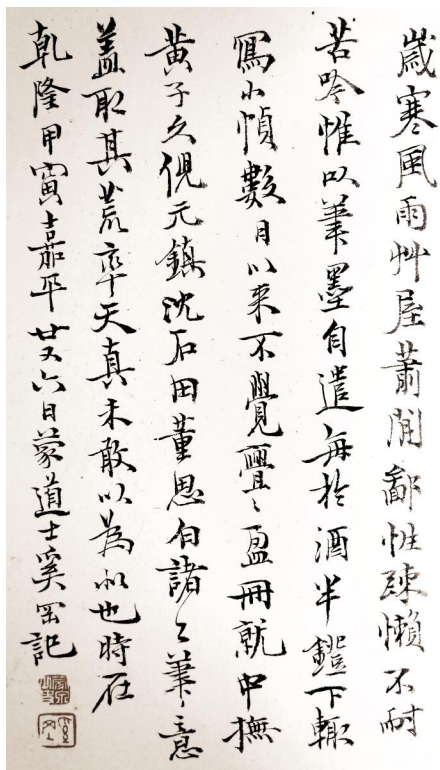 歲寒風雨艸屋蕭閒鄙性疎懶不耐
苦吟惟以筆墨自遣每於酒半鐙下輒
寫小幀數月以來不覺舋〻盈冊就中撫
黃子久倪元鎮沈石田董思白諸〻筆意
蓋取其荒率天真未敢以為似也時在
乾隆甲寅嘉平廿又六日蒙道士奚岡記